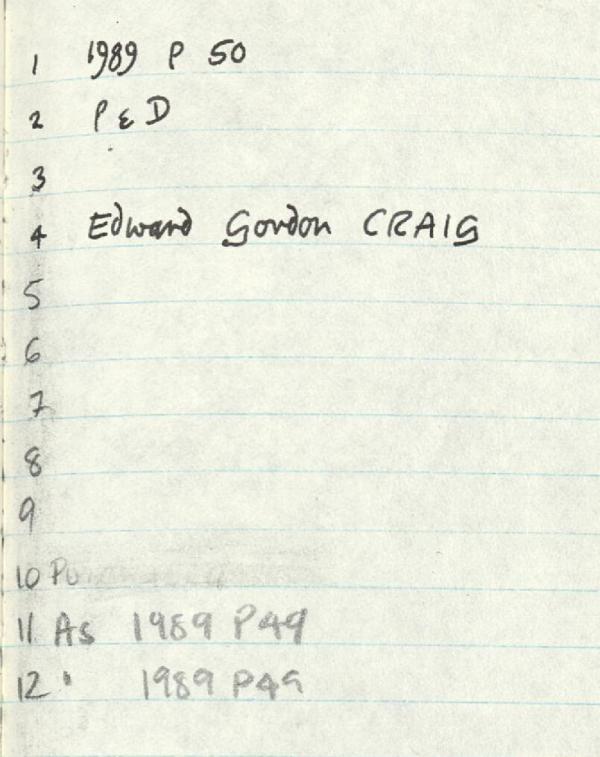 1 1989 P 50
2 P & D
3
4 Edward Gordon CRAIG
5
6
7
8
9
10
11 As 1989 P49
12 " 1989 P49